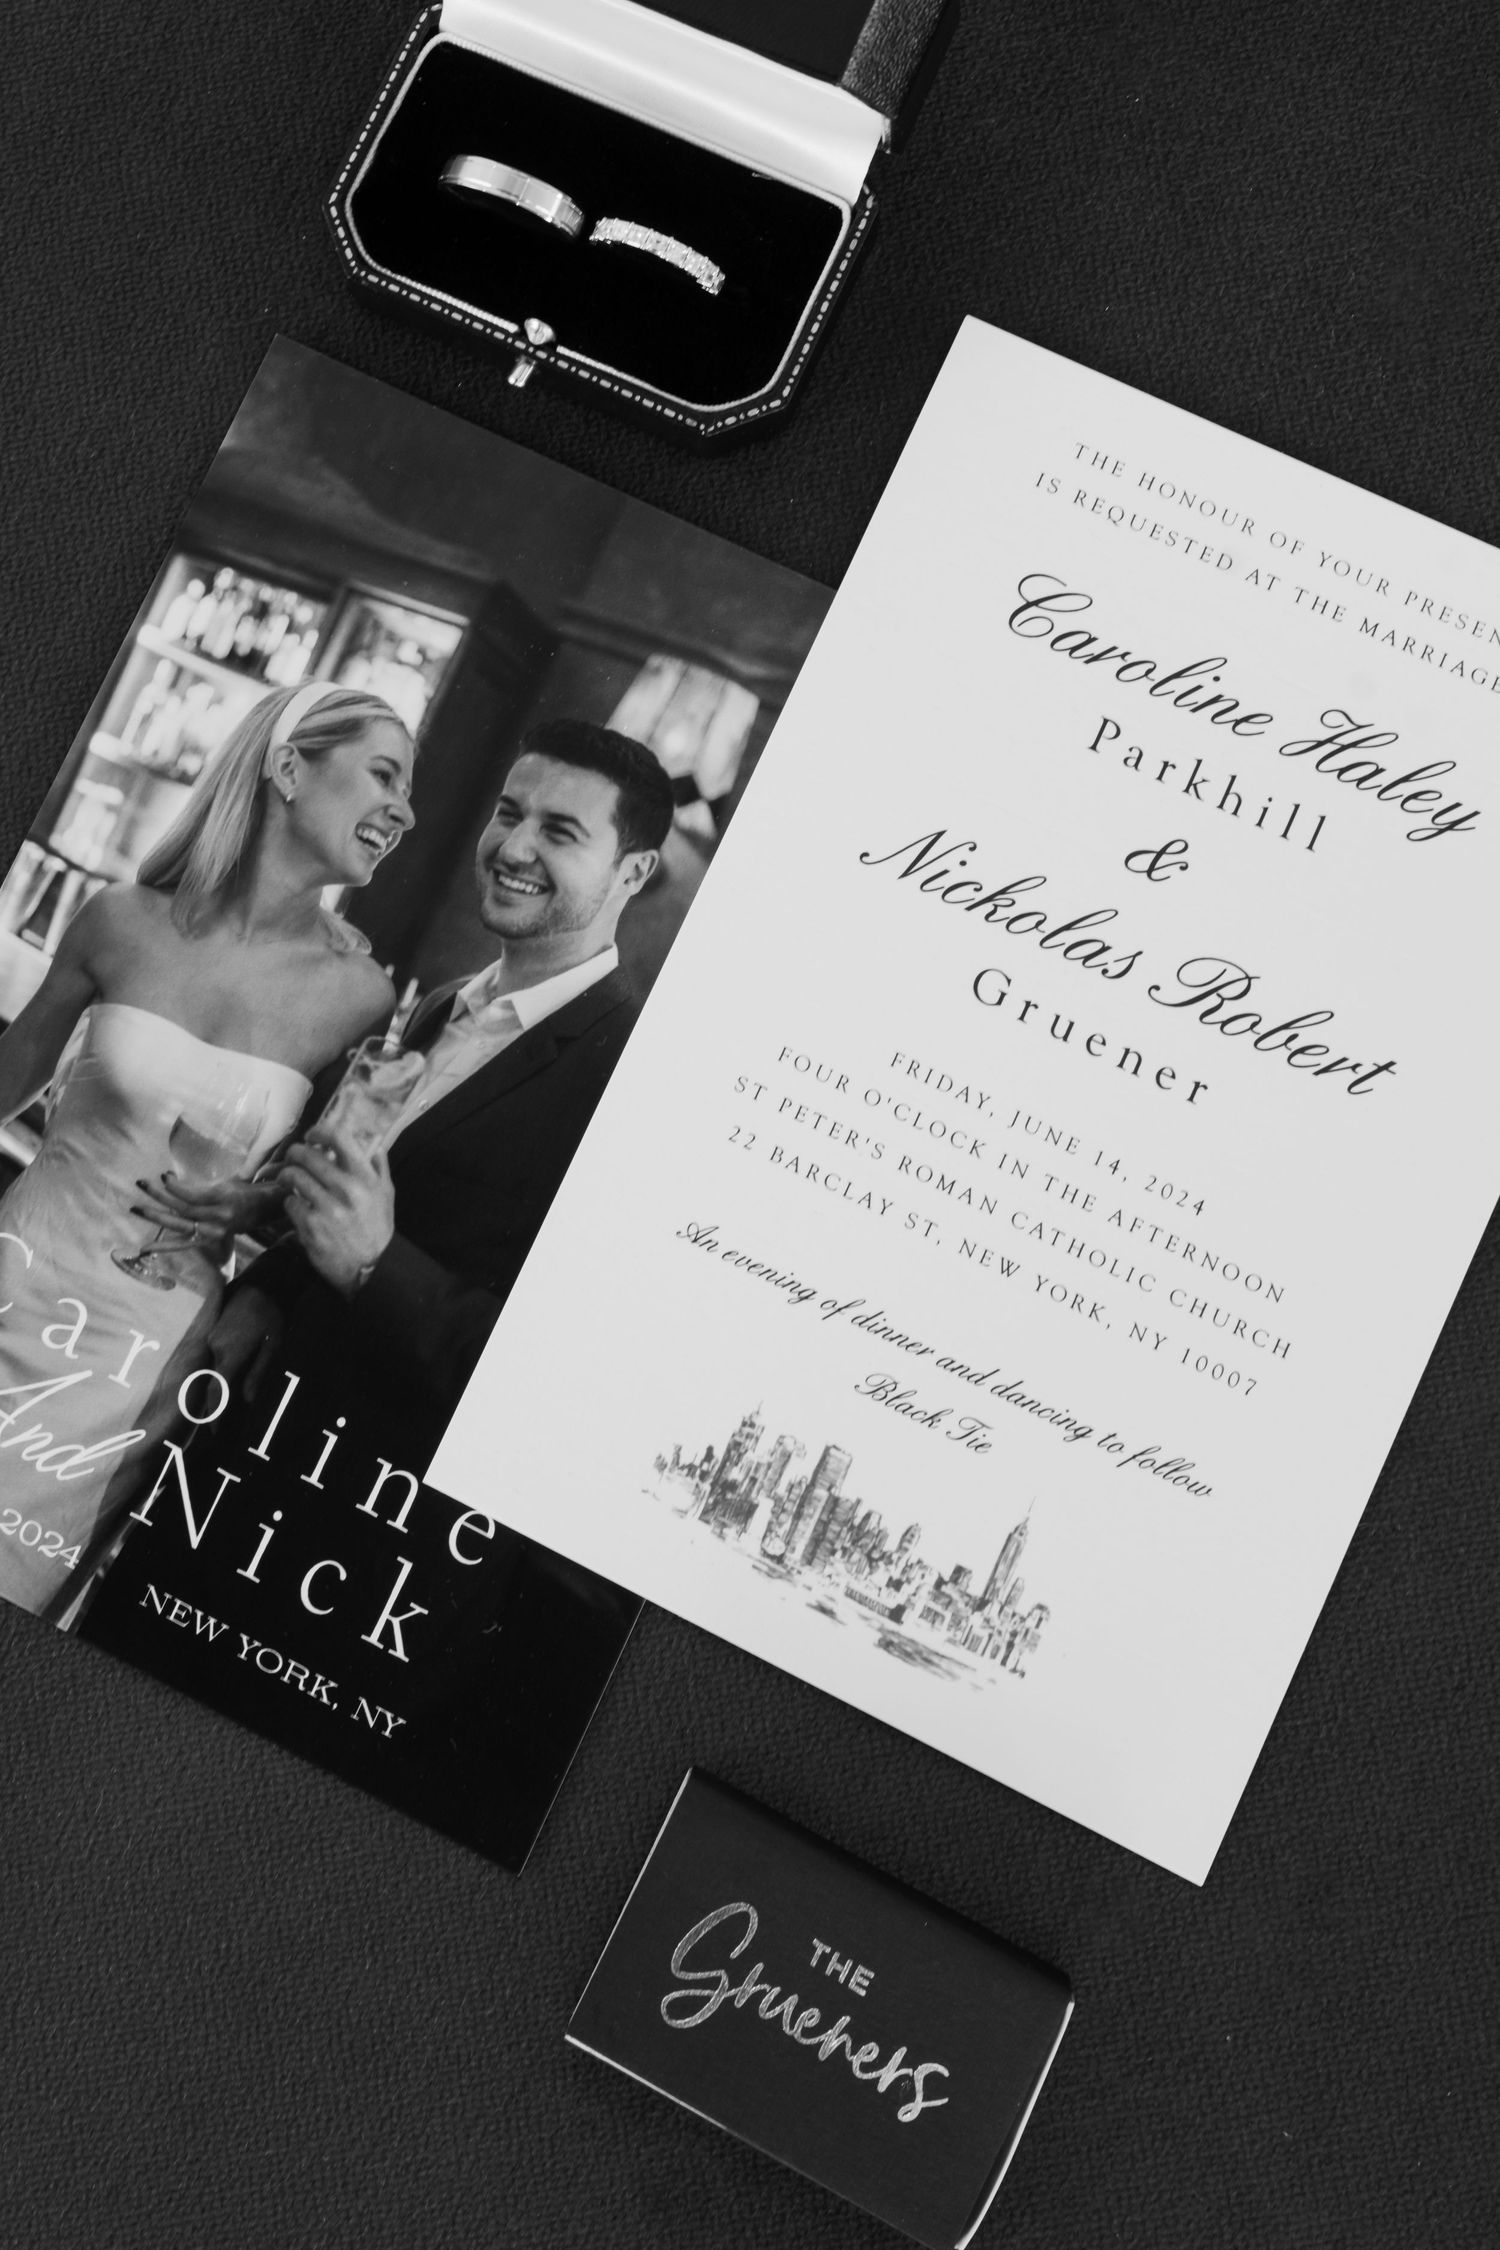 THE HONOUR OF YOUR
IS REQUESTED AT THE MARRIAGE
Caroline Haley
Parkhill
&
Nickolas Robert
Gruener
FRIDAY, JUNE 14, 2024
FOUR O'CLOCK IN THE AFTERNOON
ST PETER'S ROMAN CATHOLIC CHURCH
22 BARCLAY ST, NEW YORK, NY 10007
An evening of dinner and dancing to follow
Black Tie
Caroline
And Nick
2024 NEW YORK, NY
THE
Grueners